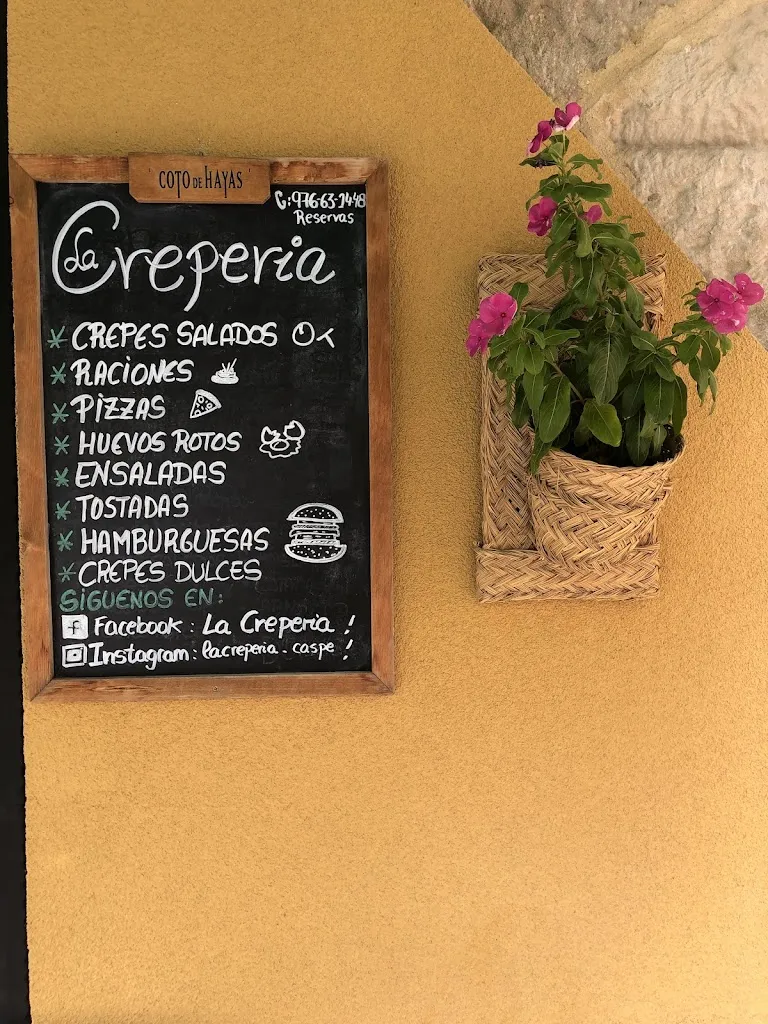 COTO DE HAYAS
C:976-63-2448
Reservas
La Creperia
* CREPES SALADOS
* RACIONES
* PIZZAS
* HUEVOS ROTOS
* ENSALADAS
* TOSTADAS
* HAMBURGUESAS
* CREPES DULCES
SIGUENOS EN:
f Facebook: La Creperia!
Instagram: lacreperia-caspe!